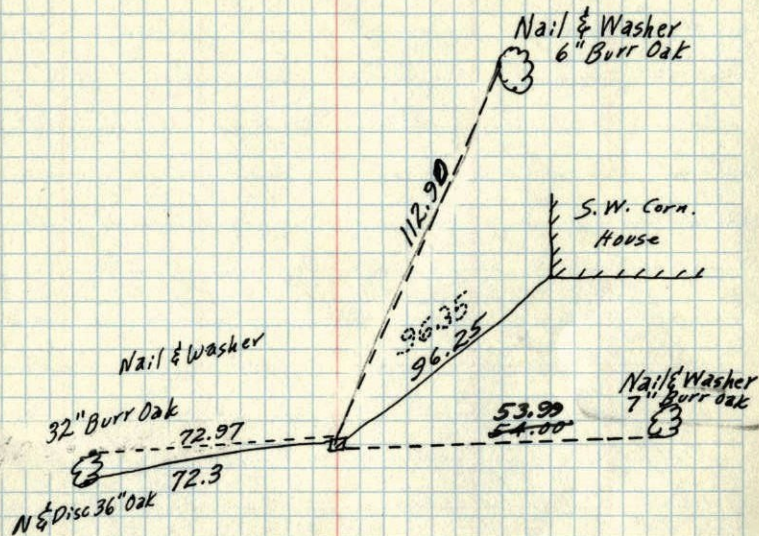 Nail & Washer
6" Burr Oak
112.90
S.W. Corn.
House
96.35
96.25
Nail & Washer
32" Burr Oak
72.97
72.3
N & Disc 36" Oak
53.99
54.00
Nail & Washer
7" Burr Oak